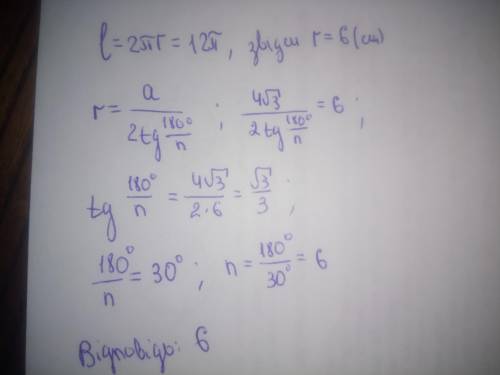 l = 2πr = 12π, звідси r = 6 (см)
r = a / (2tg 180°/n) ; 4√3 / (2tg 180°/n) = 6 ;
tg 180°/n = 4√3 / 2·6 = √3 / 3 ;
180°/n = 30° ; n = 180°/30° = 6
Відповідь: 6